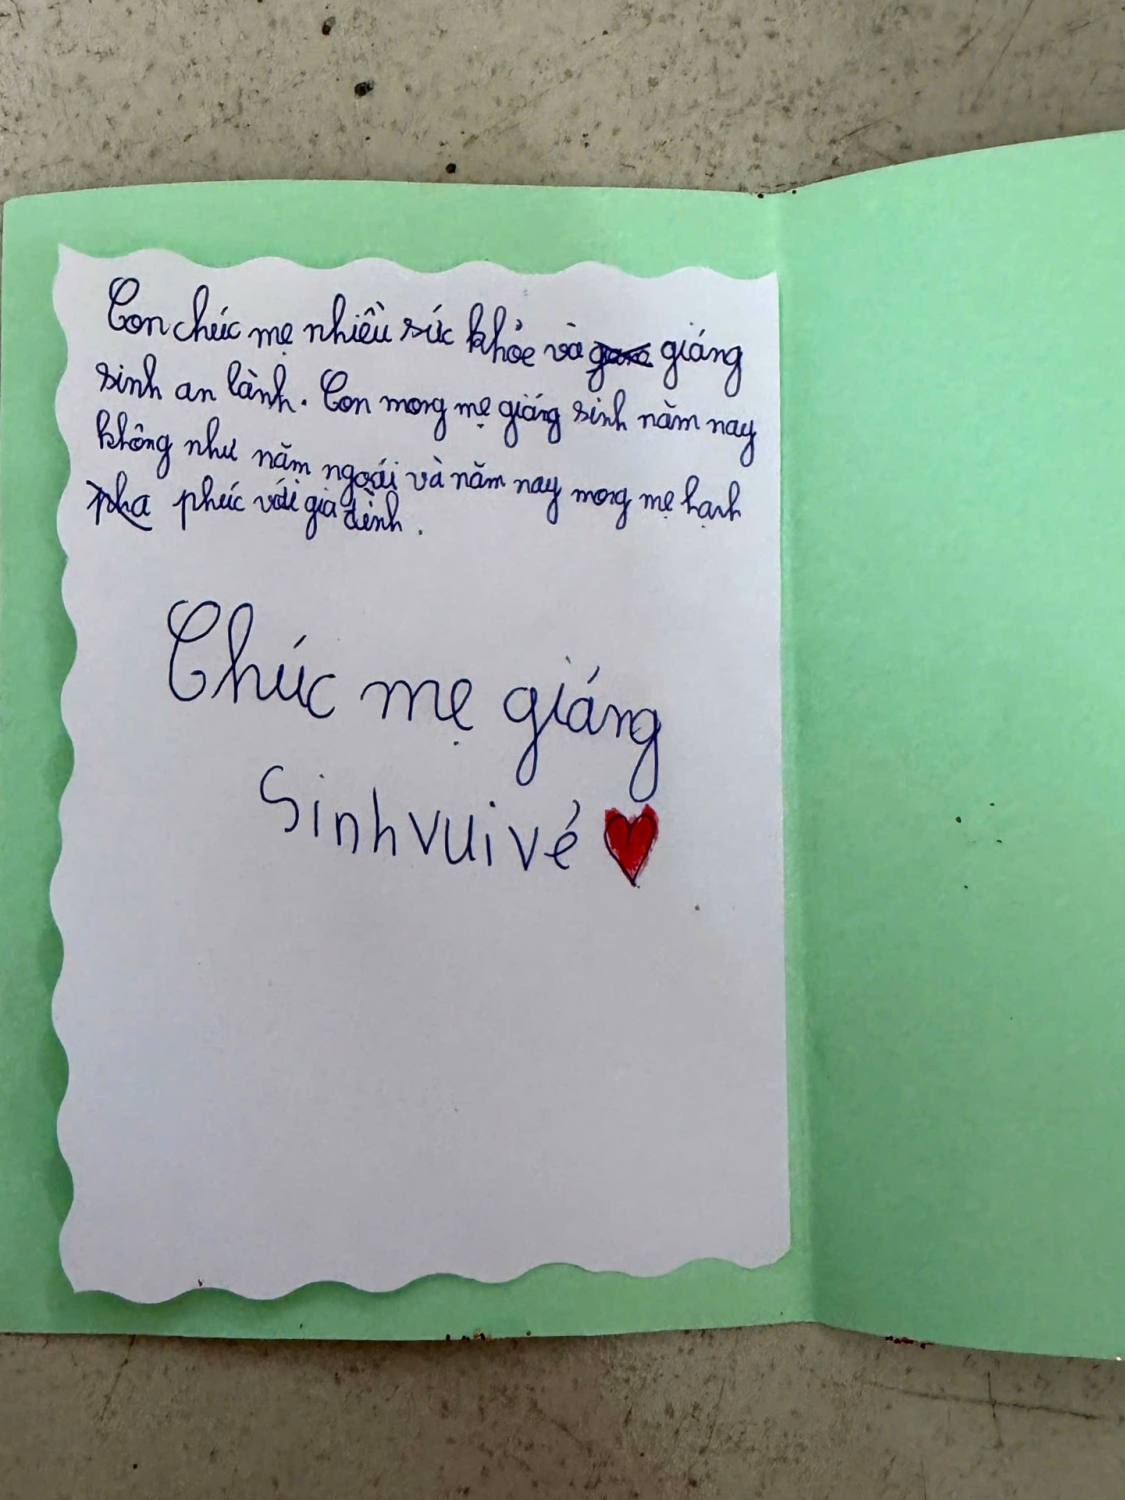 Con chúc mẹ nhiều sức khỏe và giáng
sinh an lành. Con mong mẹ giáng sinh năm nay
không như năm ngoái và năm nay mong mẹ hạnh
phúc với gia đình.
Chúc mẹ giáng
Sinh vui vẻ